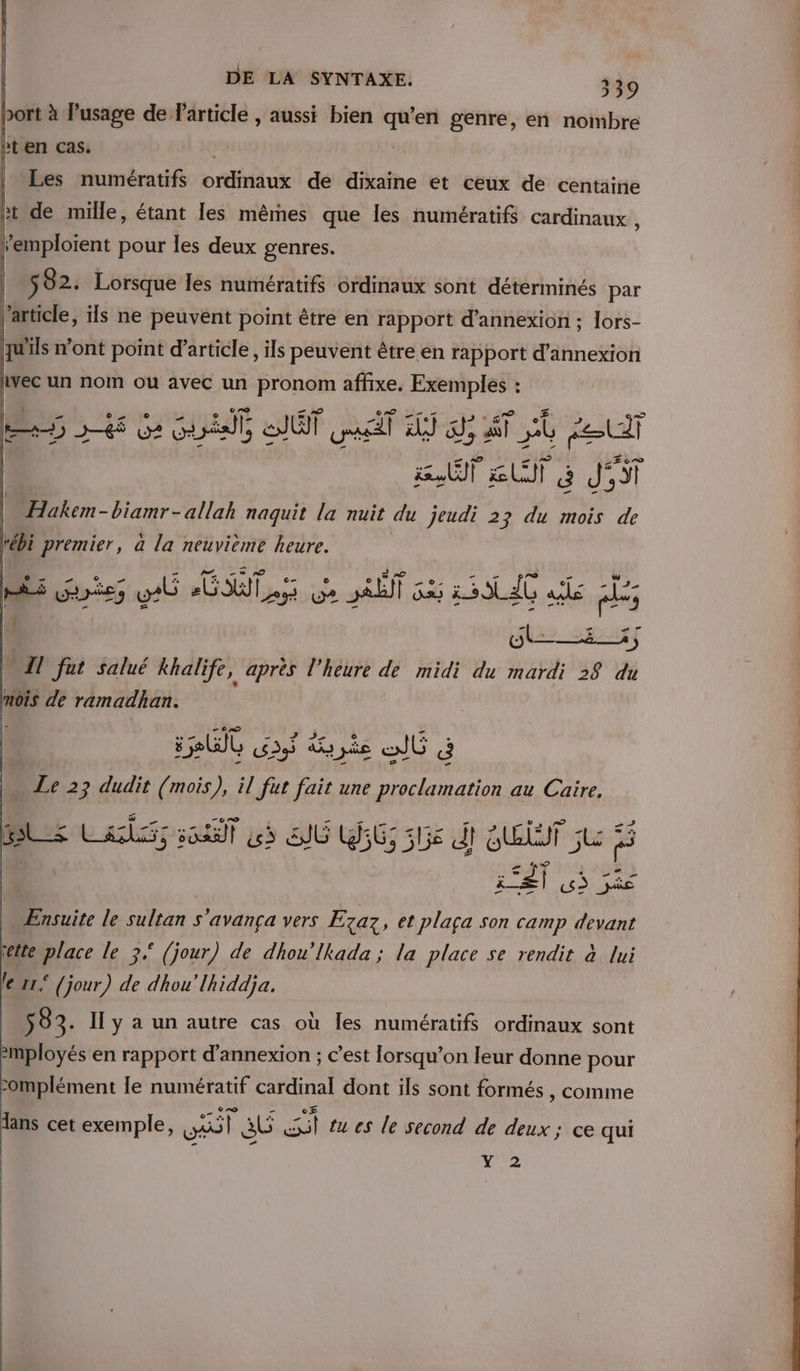 DE LA SYNTAXE. 339
port à l'usage de l'article, aussi bien qu'en genre, en nombre
et en cas.
Les numératifs ordinaux de dixaine et ceux de centaine
et de mille, étant les mêmes que les numératifs cardinaux,
s'emploient pour les deux genres.
582. Lorsque les numératifs ordinaux sont déterminés par
l'article, ils ne peuvent point être en rapport d'annexion; lors-
qu'ils n'ont point d'article, ils peuvent être en rapport d'annexion
avec un nom ou avec un pronom affixe. Exemples:
الحاكم بأمر الله ولد ليلة الخميس الثالث والعشرين من شهر ربيع
الأول في الساعة التاسعة
Hakem-biamr-allah naquit la nuit du jeudi 23 du mois de
rébi premier, à la neuvième heure.
وسلم عليه بالخلافة بعد الظهر من يوم الثلاثاء ثامن وعشرين شهر
رمضان
Il fut salué khalife, après l'heure de midi du mardi 28 du
mois de ramadhan.
في ثالث عشرينه نودي بالقاهرة
Le 23 dudit (mois), il fut fait une proclamation au Caire.
ثم سار السلطان إلى عزاز ونازلها ثالث ذي القعدة وتسلمها حادي
عشر ذي الحجة
Ensuite le sultan s'avança vers Ezaz, et plaça son camp devant
cette place le 3.e (jour) de dhou'lkada; la place se rendit à lui
le 11.e (jour) de dhou'lhiddja.
583. Il y a un autre cas où les numératifs ordinaux sont
employés en rapport d'annexion; c'est lorsqu'on leur donne pour
complément le numératif cardinal dont ils sont formés, comme
dans cet exemple, أنت ثاني اثنين tu es le second de deux; ce qui
Y 2